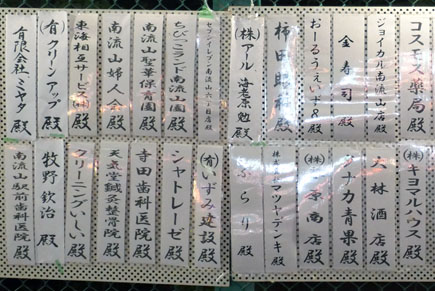 コスモス薬局 殿
ジョイカル南流山店殿
金寿司 殿
おーるうぇいず8 殿
柿田 殿
(株)アール 海老原勉 殿
セブンイレブン南流山六丁目店殿
ちびっこランド南流山園 殿
南流山聖華保育園 殿
南流山婦人会 殿
東海相互サービス(株) 殿
(有)クリーンアップ 殿
有限会社ミヤタ 殿
(株)キヨマルハウス 殿
大林酒店 殿
タナカ青果 殿
(株)原商店 殿
マツヤデンキ 殿
ふらり 殿
(有)いずみ建設 殿
シャトレーゼ 殿
寺田歯科医院 殿
天真堂鍼灸整骨院 殿
クリーニングいしい 殿
牧野欽治 殿
南流山駅前歯科医院 殿